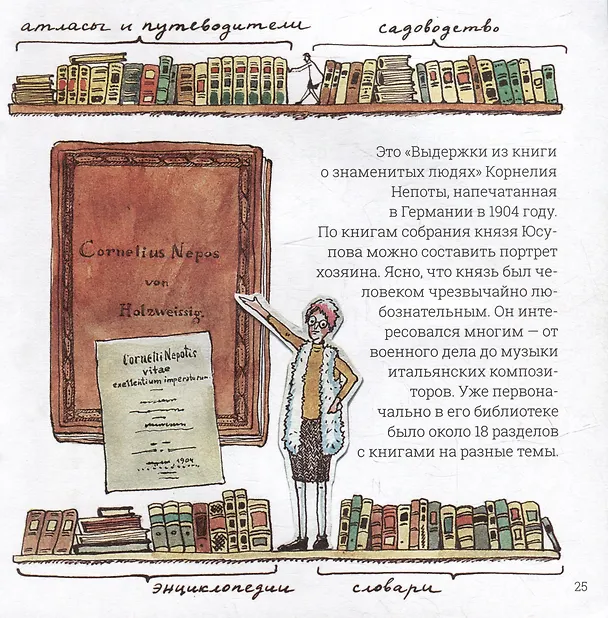 атласы и путеводители
садоводство
Это «Выдержки из книги
о знаменитых людях» Корнелия
Непоты, напечатанная
в Германии в 1904 году.
По книгам собрания князя Юсу-
пова можно составить портрет
хозяина. Ясно, что князь был че-
ловеком чрезвычайно лю-
бознательным. Он инте-
ресовался многим — от
военного дела до музыки
итальянских компози-
торов. Уже первона-
чально в его библиотеке
было около 18 разделов
с книгами на разные темы.
Cornelius Nepos
von
Holzweissig.
Cornelii Nepotis
vitae
excellentium imperatorum
1904
энциклопедии
словари
25